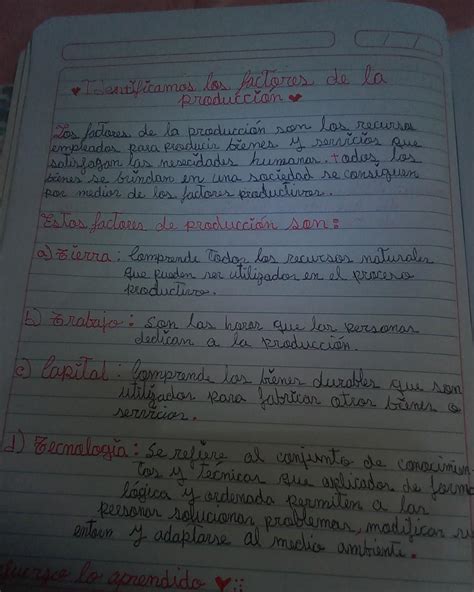 ♥Identificamos los factores de la
producción♥
Los factores de la producción son los recursos
empleados para producir bienes y servicios que
satisfagan las nesecidades humanas. todos los
bienes se brindan en una sociedad se consiguen
por medior de los factores productivos.
Estos factores de producción son:
a) Tierra: Comprende todos los recursos naturales
que pueden ser utilizados en el proceso
productivo.
b) Trabajo: Son las horas que las personas
dedican a la producción.
c) Capital: Comprende los bienes durables que son
utilizados para fabricar otros bienes o
servicios.
d) Tecnología: Se refiere al conjunto de conocimien
tos y técnicas que aplicados de forma
lógica y ordenada permiten a las
personas solucionar problemas, modificar su
entorn y adaptarse al medio ambiente.
fuerzo lo aprendido ♥::